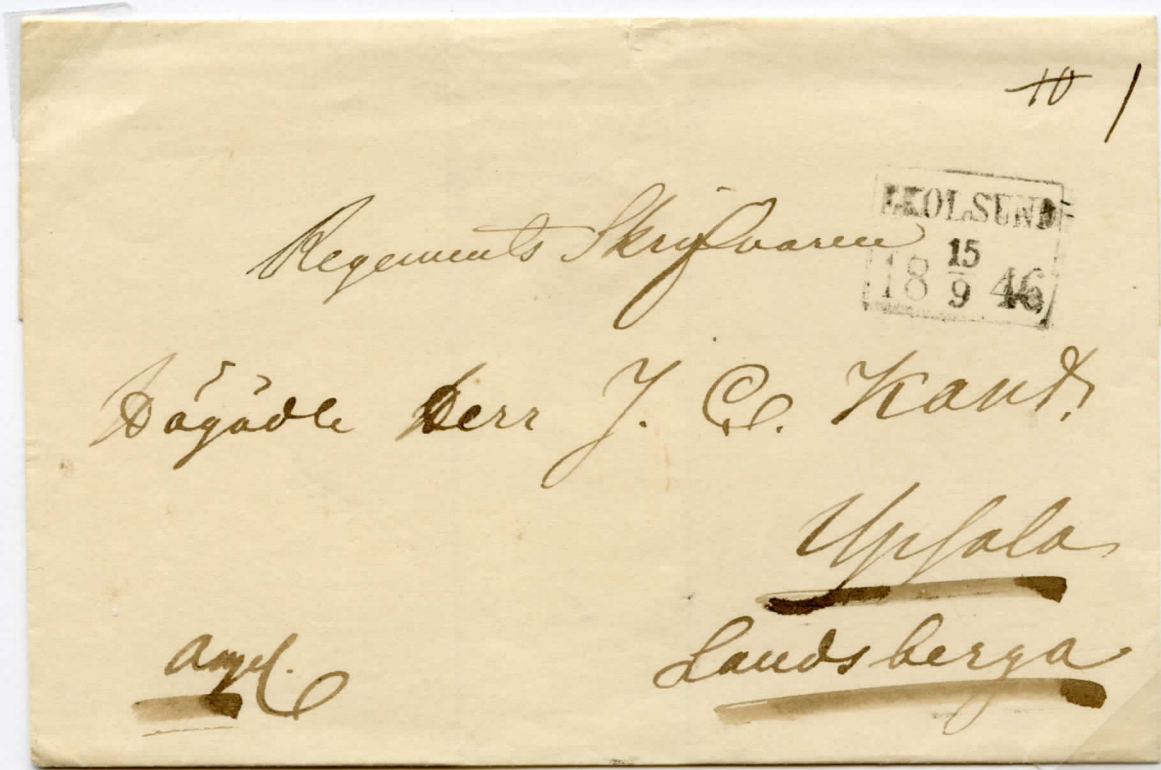 10 1
EKOLSUND
15
18 9 46
Regements Skrifvaren
Högädle Herr J. C. Kant.
Upsala
Landsberga
Angel.